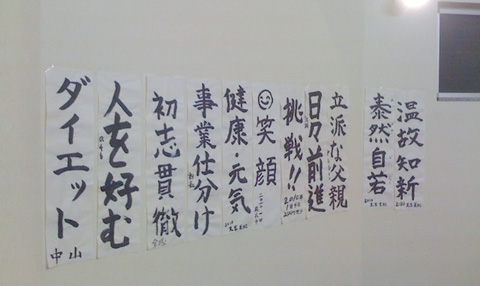 温故知新
泰然自若
立派な父親
日々前進
挑戦!!
笑顔
健康・元気
事業仕分け
初志貫徹
人を好む
ダイエット
中山